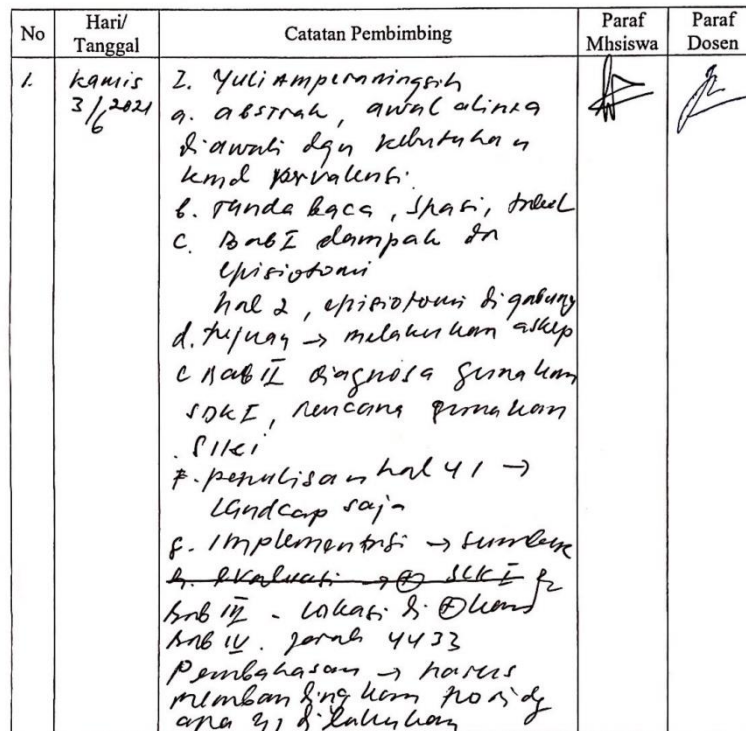 No
Hari/
Tanggal
Catatan Pembimbing
Paraf
Mhsiswa
Paraf
Dosen
1.
Kamis
3/6 2021
I. Yuli Amperaningsih
a. abstrak, awal alinea
diawali dgn kebutuhan
kmd prevalensi.
b. Tanda baca, spasi,
c. Bab I dampak dr
episiotomi
hal 2, episiotomi digabung
d. tujuan → melakukan askep
e Bab II diagnosa gunakan
SDKI, rencana gunakan
SIKI
F. penulisan hal 41 →
Landcap saja
g. Implementasi → sumber
h. evaluasi → ⊕ SLKI
Bab III - Lokasi di ⊕ kan
Bab IV. jarak 4433
Pembahasan → harus
membandingkan dg
apa yg dilakukan